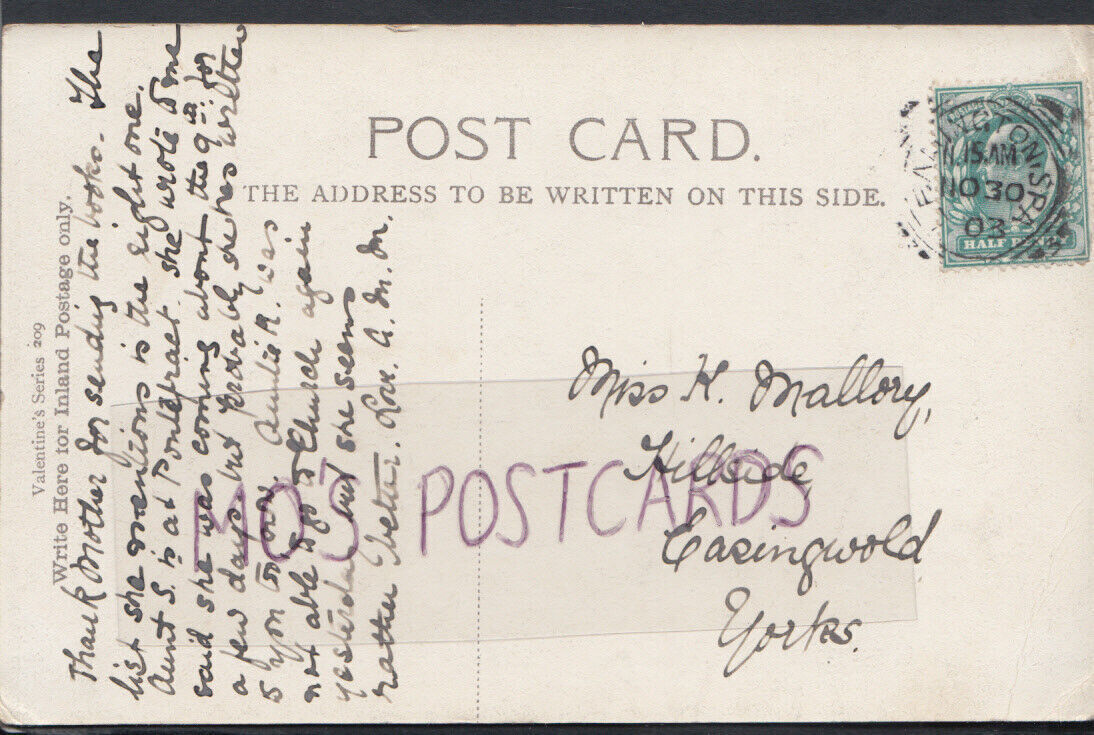 POST CARD.
THE ADDRESS TO BE WRITTEN ON THIS SIDE.
Valentine's Series 209
Write Here for Inland Postage only.
Thank Mother for sending the books. The
list she mentions is the right one.
Aunt S. is at Pontefract. she wrote to me
said she was coming about the 9th for
a few days but probably she has written
to you too now. Auntie K. was
not able to go to Church again
yesterday but she seems
rather better. Love. A. M. M.
LEAMINGTON·SPA
11.15.AM
NO 30
03
HALF PENNY
Miss K. Mallory,
Hillside,
Easingwold
Yorks.
MO'S POSTCARDS